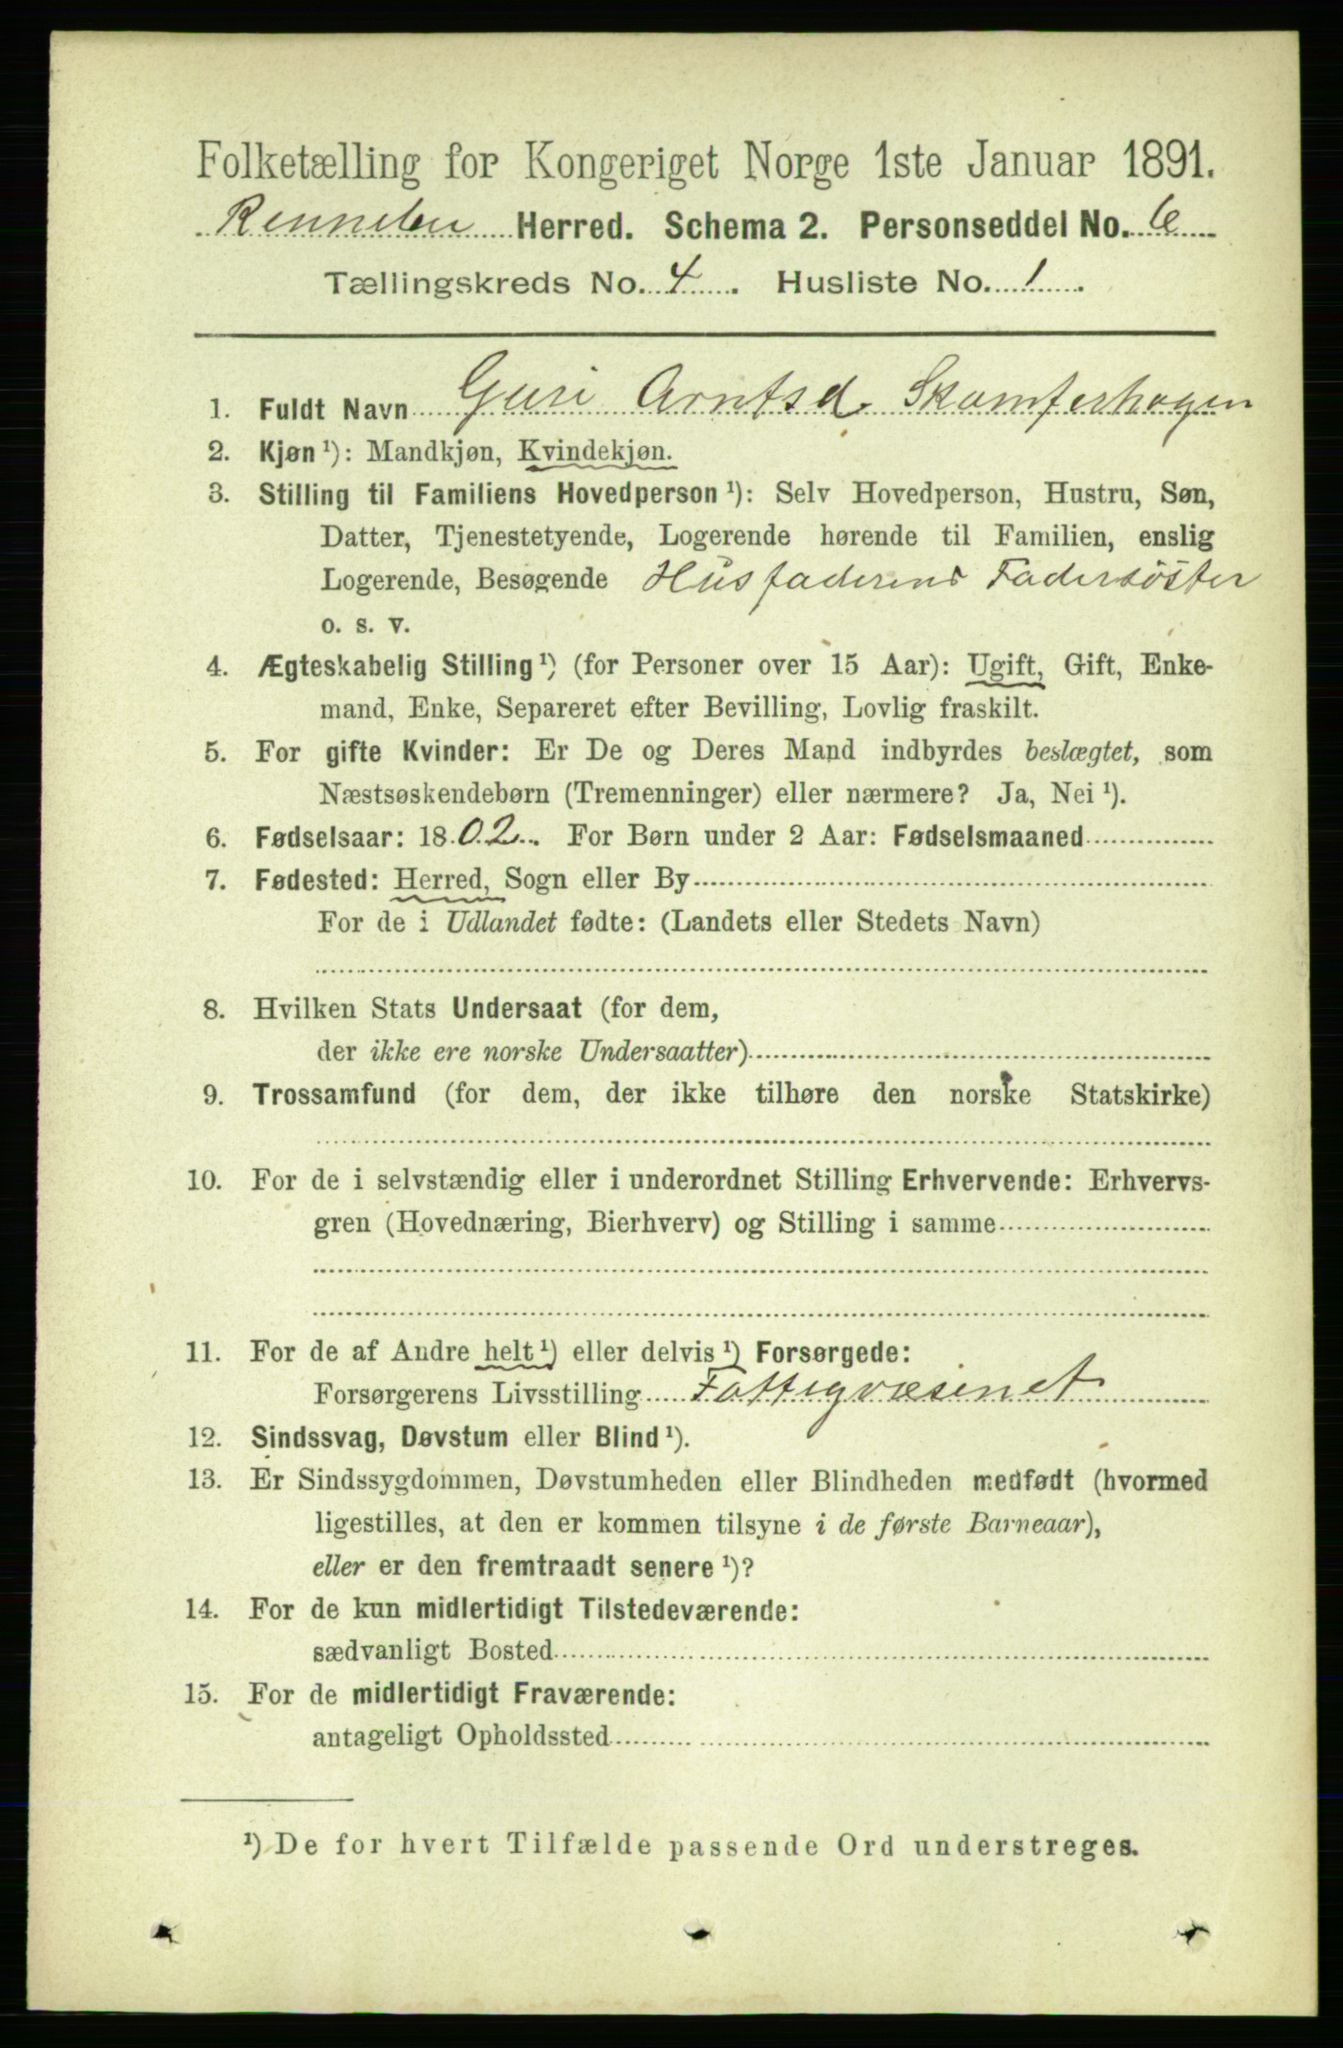 Folketælling for Kongeriget Norge 1ste Januar 1891.
Rennebu Herred. Schema 2. Personseddel No. 6
Tællingskreds No. 4. Husliste No. 1.
1. Fuldt Navn Guri Arntsd. Skamferhagen
2. Kjøn ¹): Mandkjøn, Kvindekjøn.
3. Stilling til Familiens Hovedperson ¹): Selv Hovedperson, Hustru, Søn,
Datter, Tjenestetyende, Logerende hørende til Familien, enslig
Logerende, Besøgende Husfaderens Fadersöster
o. s. v.
4. Ægteskabelig Stilling ¹) (for Personer over 15 Aar): Ugift, Gift, Enke-
mand, Enke, Separeret efter Bevilling, Lovlig fraskilt.
5. For gifte Kvinder: Er De og Deres Mand indbyrdes beslægtet, som
Næstsøskendebørn (Tremenninger) eller nærmere? Ja, Nei ¹).
6. Fødselsaar: 1802. For Børn under 2 Aar: Fødselsmaaned
7. Fødested: Herred, Sogn eller By
For de i Udlandet fødte: (Landets eller Stedets Navn)
8. Hvilken Stats Undersaat (for dem,
der ikke ere norske Undersaatter)
9. Trossamfund (for dem, der ikke tilhøre den norske Statskirke)
10. For de i selvstændig eller i underordnet Stilling Erhvervende: Erhvervs-
gren (Hovednæring, Bierhverv) og Stilling i samme
11. For de af Andre helt ¹) eller delvis ¹) Forsørgede:
Forsørgerens Livsstilling Fattigvæsenet
12. Sindssvag, Døvstum eller Blind ¹).
13. Er Sindssygdommen, Døvstumheden eller Blindheden medfødt (hvormed
ligestilles, at den er kommen tilsyne i de første Barneaar),
eller er den fremtraadt senere ¹)?
14. For de kun midlertidigt Tilstedeværende:
sædvanligt Bosted
15. For de midlertidigt Fraværende:
antageligt Opholdssted
¹) De for hvert Tilfælde passende Ord understreges.